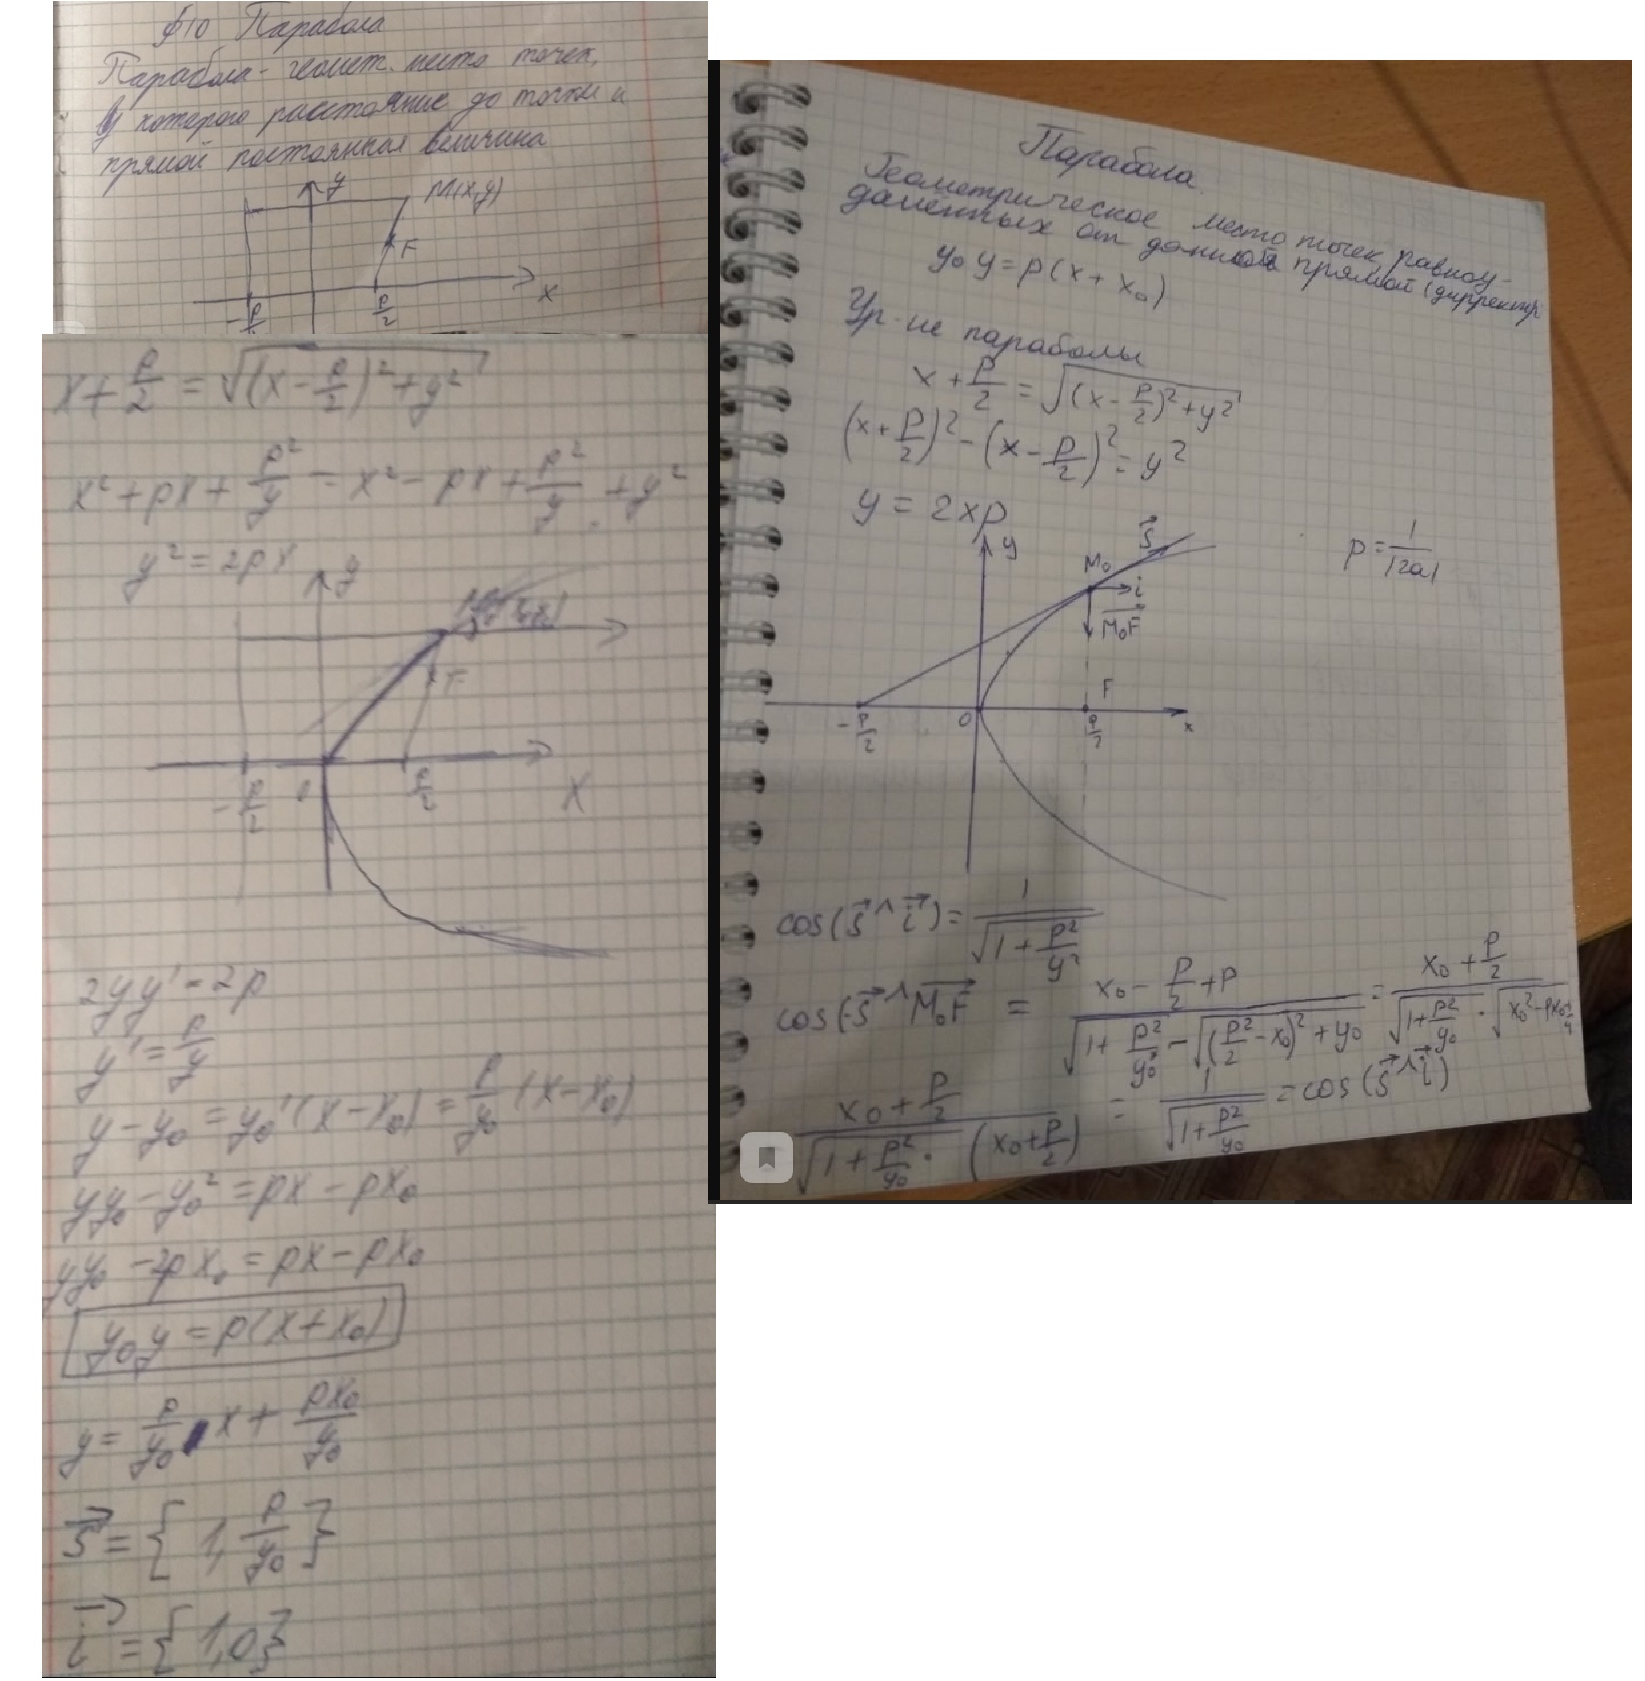 §10 Парабола
Парабола - геомет. место точек,
у которого расстояние до точки и
прямой постоянная величина
y M(x,y)
F
-p/2 p/2 x
x + p/2 = √((x - p/2)² + y²)
x² + px + p²/y = x² - px + p²/y + y²
y² = 2px
y
F
-p/2 0 p/2 X
2yy' = 2p
y' = p/y
y - y₀ = y₀'(x - x₀) = p/y₀ (x - x₀)
yy₀ - y₀² = px - px₀
yy₀ - 2px₀ = px - px₀
y₀y = p(x + x₀)
y = p/y₀ · x + px₀/y₀
s⃗ = {1, p/y₀}
i⃗ = {1, 0}
Парабола.
Геометрическое место точек равноу-
даленных от данной прямой (дирректр
y₀y = p(x + x₀)
Ур-ие параболы
x + p/2 = √((x - p/2)² + y²)
(x + p/2)² - (x - p/2)² = y²
y = 2xp
p = 1/|2a|
y s⃗
M₀ i
M₀F⃗
F
-p/2 0 p/2 x
cos(s⃗ ^ i⃗) = 1/√(1 + p²/y²)
cos(-s⃗ ^ M₀F⃗ = (x₀ - p/2 + p)/(√(1 + p²/y₀²) - √((p²/2 - x₀)² + y₀)) = (x₀ + p/2)/(√(1 + p²/y₀) · √(x₀² - px₀
(x₀ + p/2)/(√(1 + p²/y₀) · (x₀ + p/2)) = 1/√(1 + p²/y₀) = cos(s⃗ ^ i⃗)